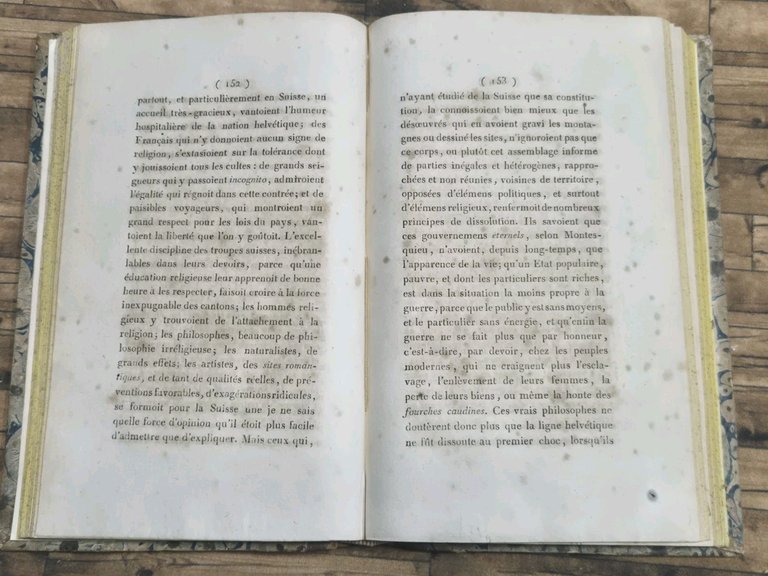 ( 152 )
partout, et particulièrement en Suisse, un
accueil très-gracieux, vantoient l'humeur
hospitalière de la nation helvétique; des
Français qui n'y donnoient aucun signe de
religion, s'extasioient sur la tolérance dont
y jouissoient tous les cultes: de grands sei-
gneurs qui y passoient incognito, admiroient
l'égalité qui régnoit dans cette contrée; et de
paisibles voyageurs, qui montroient un
grand respect pour les lois du pays, van-
toient la liberté que l'on y goûtoit. L'excel-
lente discipline des troupes suisses, inébran-
lables dans leurs devoirs, parce qu'une
éducation religieuse leur apprenoit de bonne
heure à les respecter, faisoit croire à la force
inexpugnable des cantons; les hommes reli-
gieux y trouvoient de l'attachement à la
religion; les philosophes, beaucoup de phi-
losophie irréligieuse; les naturalistes, de
grands effets; les artistes, des sites roman-
tiques, et de tant de qualités réelles, de pré-
ventions favorables, d'exagérations ridicules,
se formoit pour la Suisse une je ne sais
quelle force d'opinion qu'il étoit plus facile
d'admettre que d'expliquer. Mais ceux qui,
( 153 )
n'ayant étudié de la Suisse que sa constitu-
tion, la connoissoient bien mieux que les
désœuvrés qui en avoient gravi les monta-
gnes ou dessiné les sites, n'ignoroient pas que
ce corps, ou plutôt cet assemblage informe
de parties inégales et hétérogènes, rappro-
chées et non réunies, voisines de territoire,
opposées d'élémens politiques, et surtout
d'élémens religieux, renfermoit de nombreux
principes de dissolution. Ils savoient que
ces gouvernemens eternels, selon Montes-
quieu, n'avoient, depuis long-temps, que
l'apparence de la vie; qu'un Etat populaire,
pauvre, et dont les particuliers sont riches,
est dans la situation la moins propre à la
guerre, parce que le public y est sans moyens,
et le particulier sans énergie, et qu'enfin la
guerre ne se fait plus que par honneur,
c'est-à-dire, par devoir, chez les peuples
modernes, qui ne craignent plus l'escla-
vage, l'enlèvement de leurs femmes, la
perte de leurs biens, ou même la honte des
fourches caudines. Ces vrais philosophes ne
doutèrent donc plus que la ligne helvétique
ne fût dissoute au premier choc, lorsqu'ils